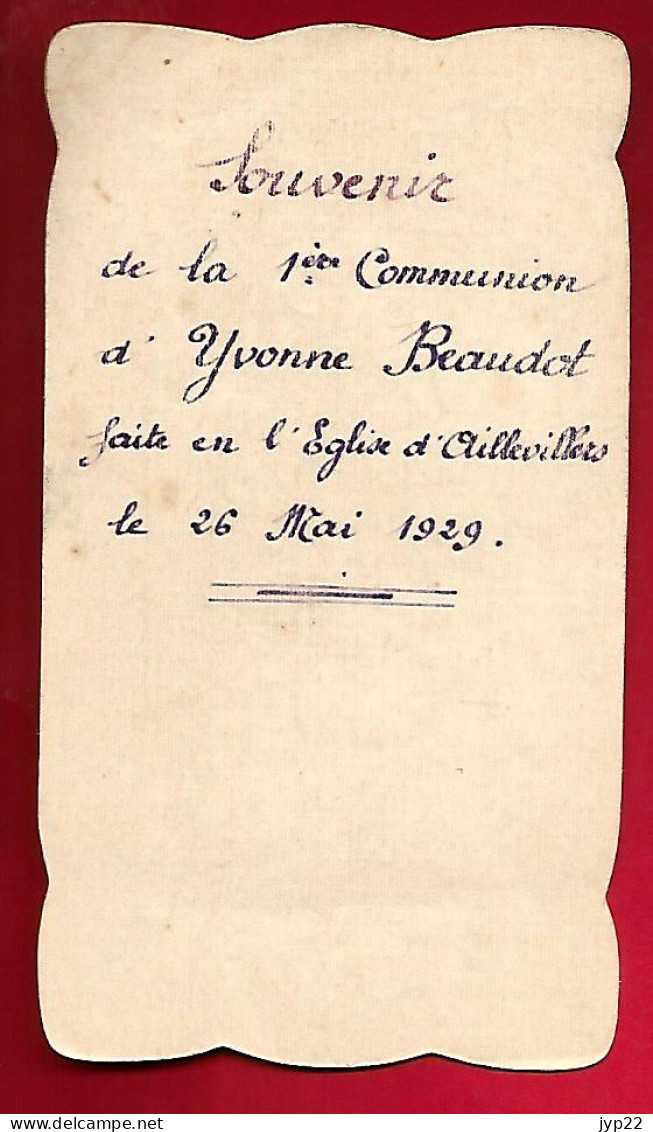 Souvenir
de la 1ère Communion
d' Yvonne Beaudot
faite en l'Eglise d'Aillevillers
le 26 Mai 1929.
delcampe.net
jyp22